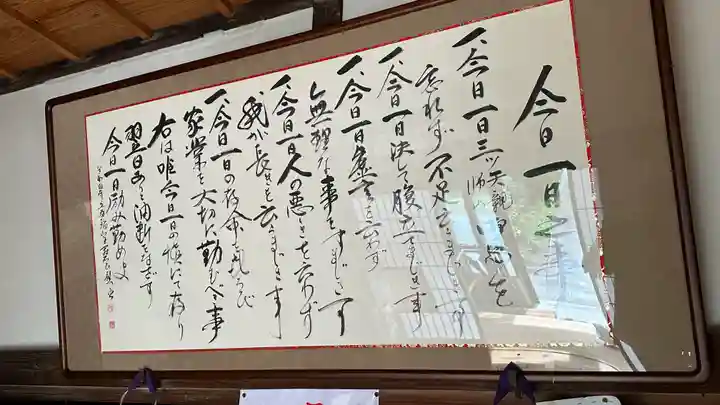 今日一日之事
一、今日一日三ツ天親師の恩を
忘れず不足云まじき事
一、今日一日決して腹立まじき事
一、今日一日虚言を云わず
無理な事をすまじき事
一、今日一日人の悪しきを云わず
我が長きを云まじき事
一、今日一日の存命を喜び
家業を大切に勤むべき事
右は唯今日一日の慎にて有り
翌日あり油断をなさず
今日一日励み勤めよ